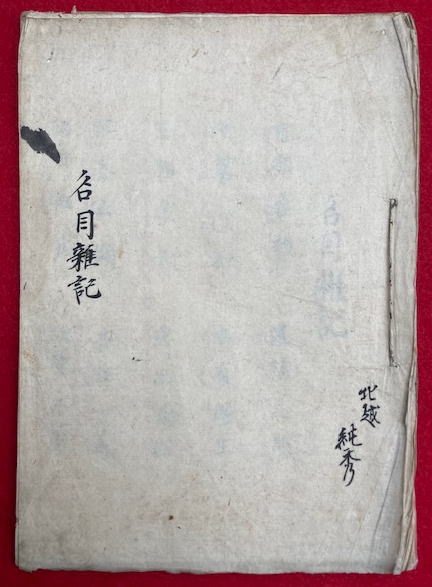 北越
純秀
名目雜記